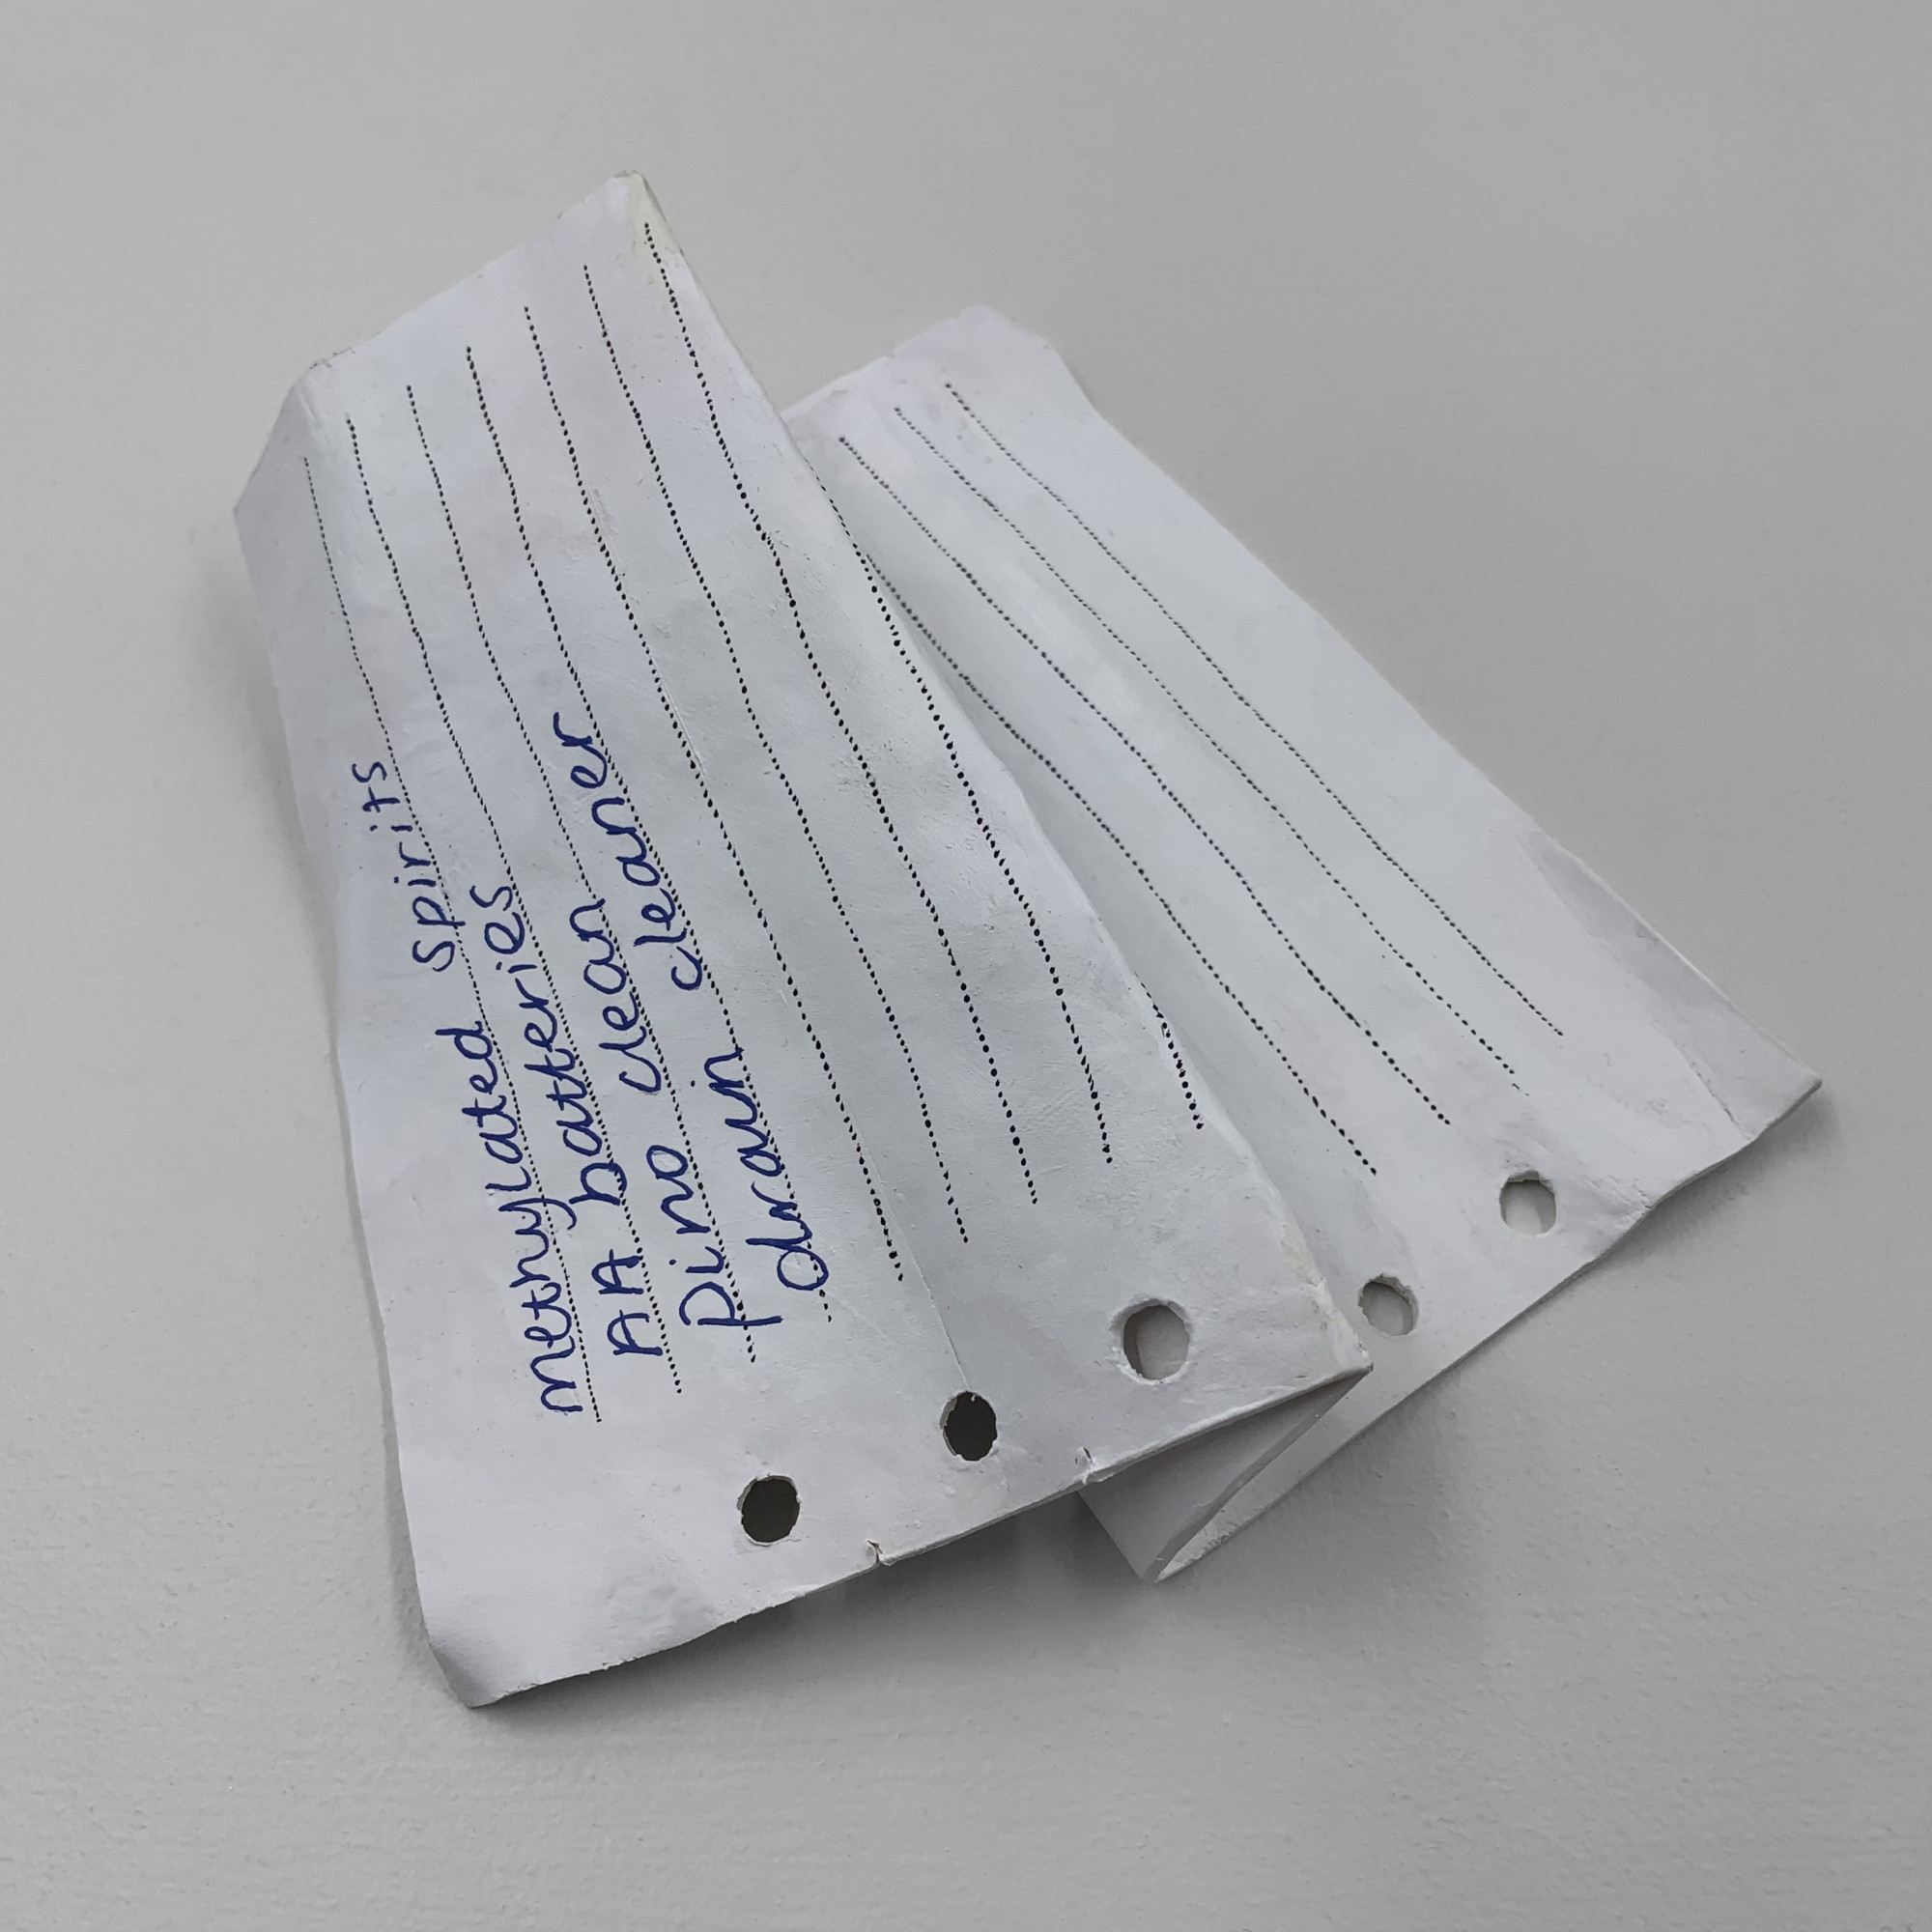 methylated spirits
AA batteries
pino clean
drain cleaner